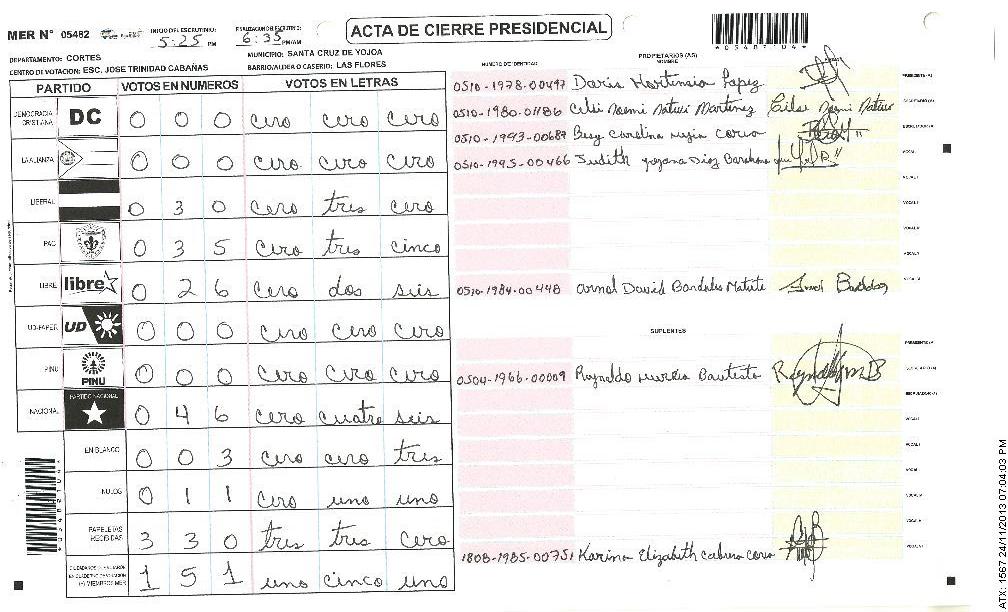 MER N° 05482 INICIO DEL ESCRUTINIO: 5:25 PM FINALIZACION DEL ESCRUTINIO: 6:35 PM/AM
ACTA DE CIERRE PRESIDENCIAL
DEPARTAMENTO: CORTES MUNICIPIO: SANTA CRUZ DE YOJOA
CENTRO DE VOTACION: ESC. JOSE TRINIDAD CABAÑAS BARRIO/ALDEA O CASERIO: LAS FLORES
PARTIDO VOTOS EN NUMEROS VOTOS EN LETRAS
DEMOCRACIA CRISTIANA DC 0 0 0 cero cero cero
LA ALIANZA 0 0 0 cero cero cero
LIBERAL 0 3 0 cero tres cero
PAC 0 3 5 cero tres cinco
LIBRE libre 0 2 6 cero dos seis
UD-FAPER UD 0 0 0 cero cero cero
PINU PINU 0 0 0 cero cero cero
NACIONAL PARTIDO NACIONAL 0 4 6 cero cuatro seis
EN BLANCO 0 0 3 cero cero tres
NULOS 0 1 1 cero uno uno
PAPELETAS RECIBIDAS 3 3 0 tres tres cero
1 5 1 uno cinco uno
NUMERO DE IDENTIDAD PROPIETARIOS (AS) NOMBRE
0510-1978-00497 Doris Hortensia Lopez PRESIDENTE (A)
0510-1980-01186 Celei Noemi Natus Martinez SECRETARIO (A)
0510-1993-00689 Besy Carolina ESCRUTADOR (A)
0510-1995-00466 Judith Diaz VOCAL I
0510-1984-00448 David Bardales Matute
SUPLENTES
PRESIDENTE (A)
0504-1966-00009 Reynaldo Bautista SECRETARIO (A)
ESCRUTADOR (A)
VOCAL I
1808-1985-00751 Karina Elizabeth Cabrera
ATX: 1567 24/11/2013 07:04:03 PM